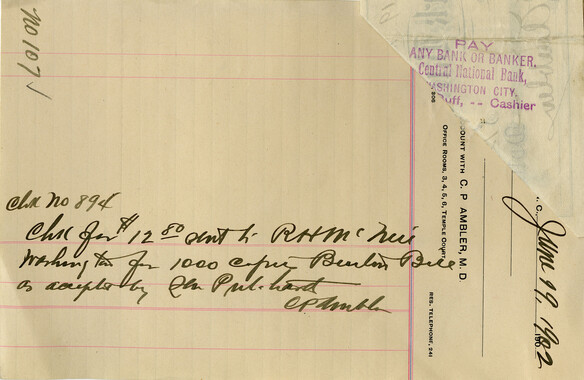 No 107
PAY
ANY BANK OR BANKER,
Central National Bank,
WASHINGTON CITY.
uff, -- Cashier
Chk No 894
Chk for $12 80 sent to R H McNeil
Washington for 1000 copies Burton Bill
as accepted by Sen Pritchard
CP Ambler
OUNT WITH C. P. AMBLER, M. D.
OFFICE ROOMS, 3, 4, 5, 6, TEMPLE COURT
RES. TELEPHONE, 241
June 19, 1902
190